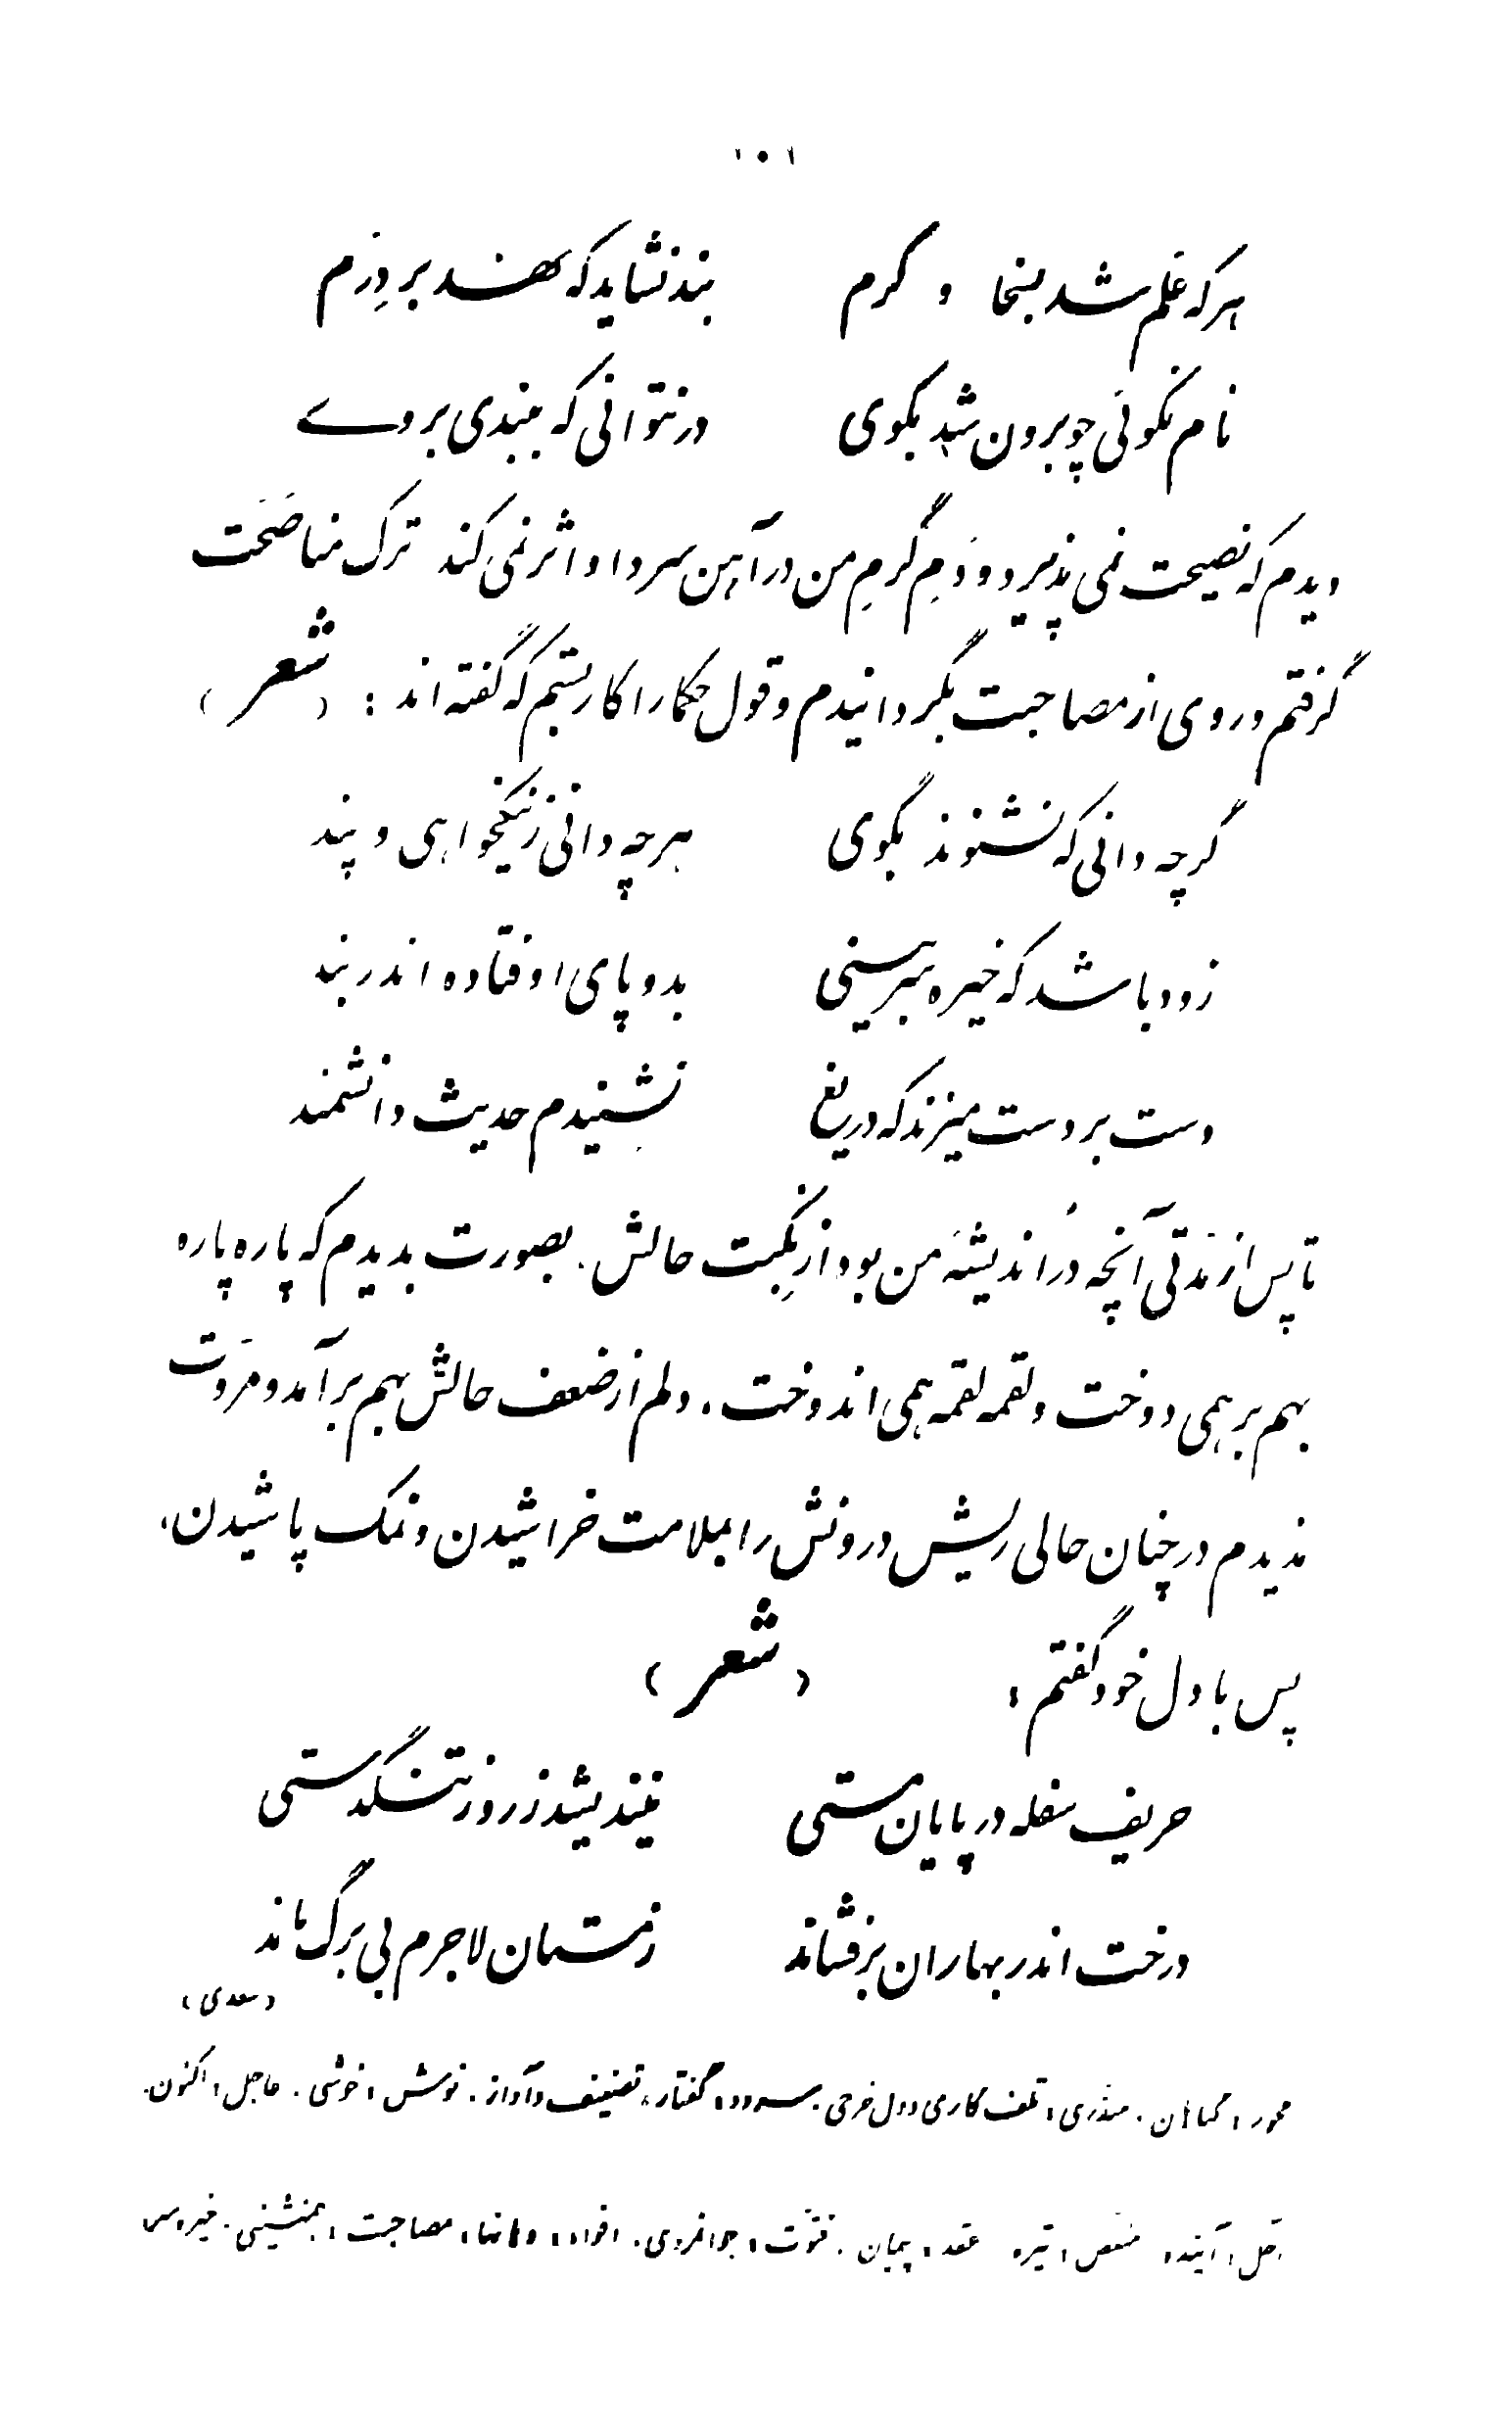 ۱۰۱
هرکه عَلَم شد بسخا و کرم بند نشاید که نهد بر دِرَم
نام نکوئی چو برون شد بکوی در نتوانی که ببندی بروے
دیدم که نصیحت نمی پذیرد و دَمِ گرمِ من در آهن سرد او اثر نمی کند ترک مناصَحَت
گرفتم و روی از مصاحبت بگردانیدم و قول حکما را کار بستم که گفته اند : (شعر)
گرچه دانی که نشنوند بگوی هرچه دانی ز نیکخواهی و پند
زود باشد که خیره سر بینی بدو پای اوفتاده اندر بند
دست بر دست میزند که دریغ نشنیدم حدیث دانشمند
تا پس از مدّتی آنچه در اندیشهٔ من بود از نِکبت حالش . بصورت بدیدم که پاره پاره
بهم بر همی دوخت و لقمه لقمه همی اندوخت . دلم از ضعف حالش بهم برآمد و مروّت
ندیدم در چنان حالی ریش درونش را بملامت خراشیدن و نمک پاشیدن ،
پس با دل خود گفتم : (شعر)
حریف سفله در پایان مستی نیندیشد ز روز تنگدستی
درخت اندر بهاران برفشاند زمستان لاجرم بی برگ ماند
(سعدی)
: گفتار ، تصنیف و آواز . نوش : خوشی . عاجل : اکنون .
آینده . منغّص : تیره عقد : پیمان . فتوّت : جوانمردی . افواه : دهانها ، مصاحبت : همنشینی . خیره سر